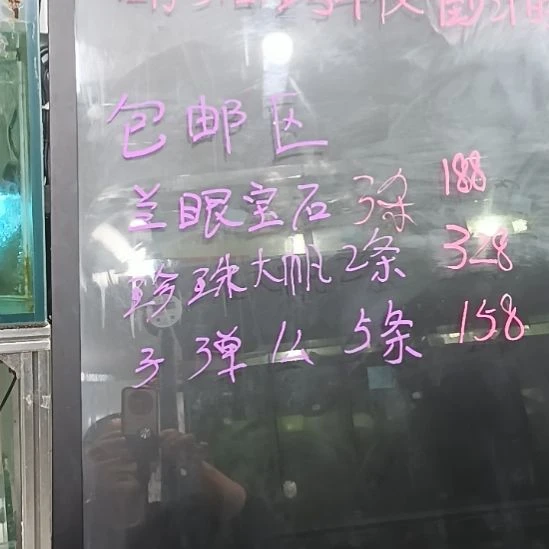 包邮区
兰眼宝石 3条 188
珍珠大帆 2条 328
子弹仏 5条 158